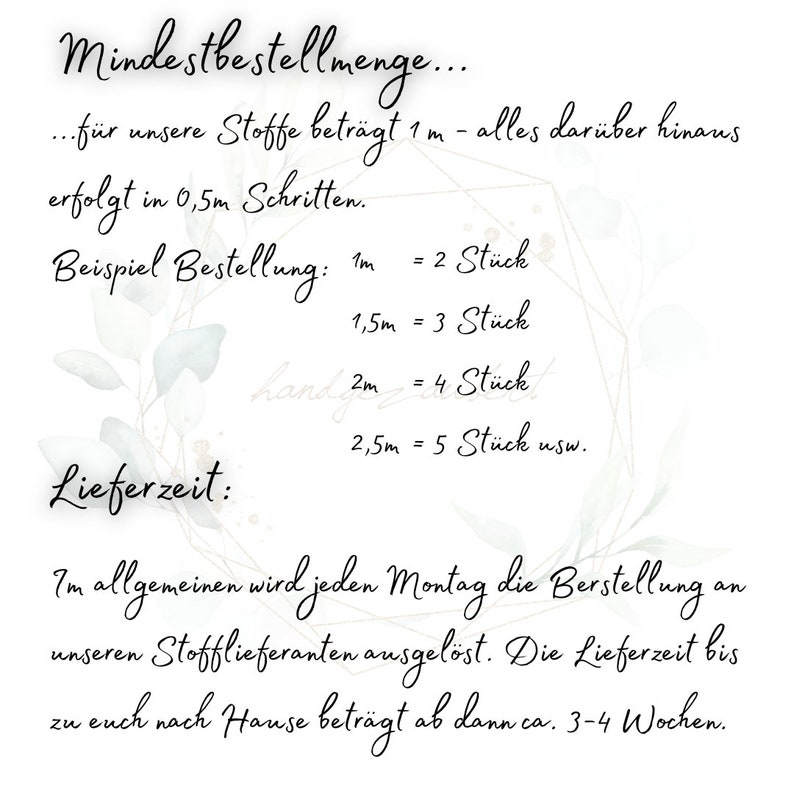 Mindestbestellmenge...
...für unsere Stoffe beträgt 1 m - alles darüber hinaus
erfolgt in 0,5m Schritten.
Beispiel Bestellung: 1m = 2 Stück
1,5m = 3 Stück
2m = 4 Stück
handgezaubert.
2,5m = 5 Stück usw.
Lieferzeit:
Im allgemeinen wird jeden Montag die Berstellung an
unseren Stofflieferanten ausgelöst. Die Lieferzeit bis
zu euch nach Hause beträgt ab dann ca. 3-4 Wochen.